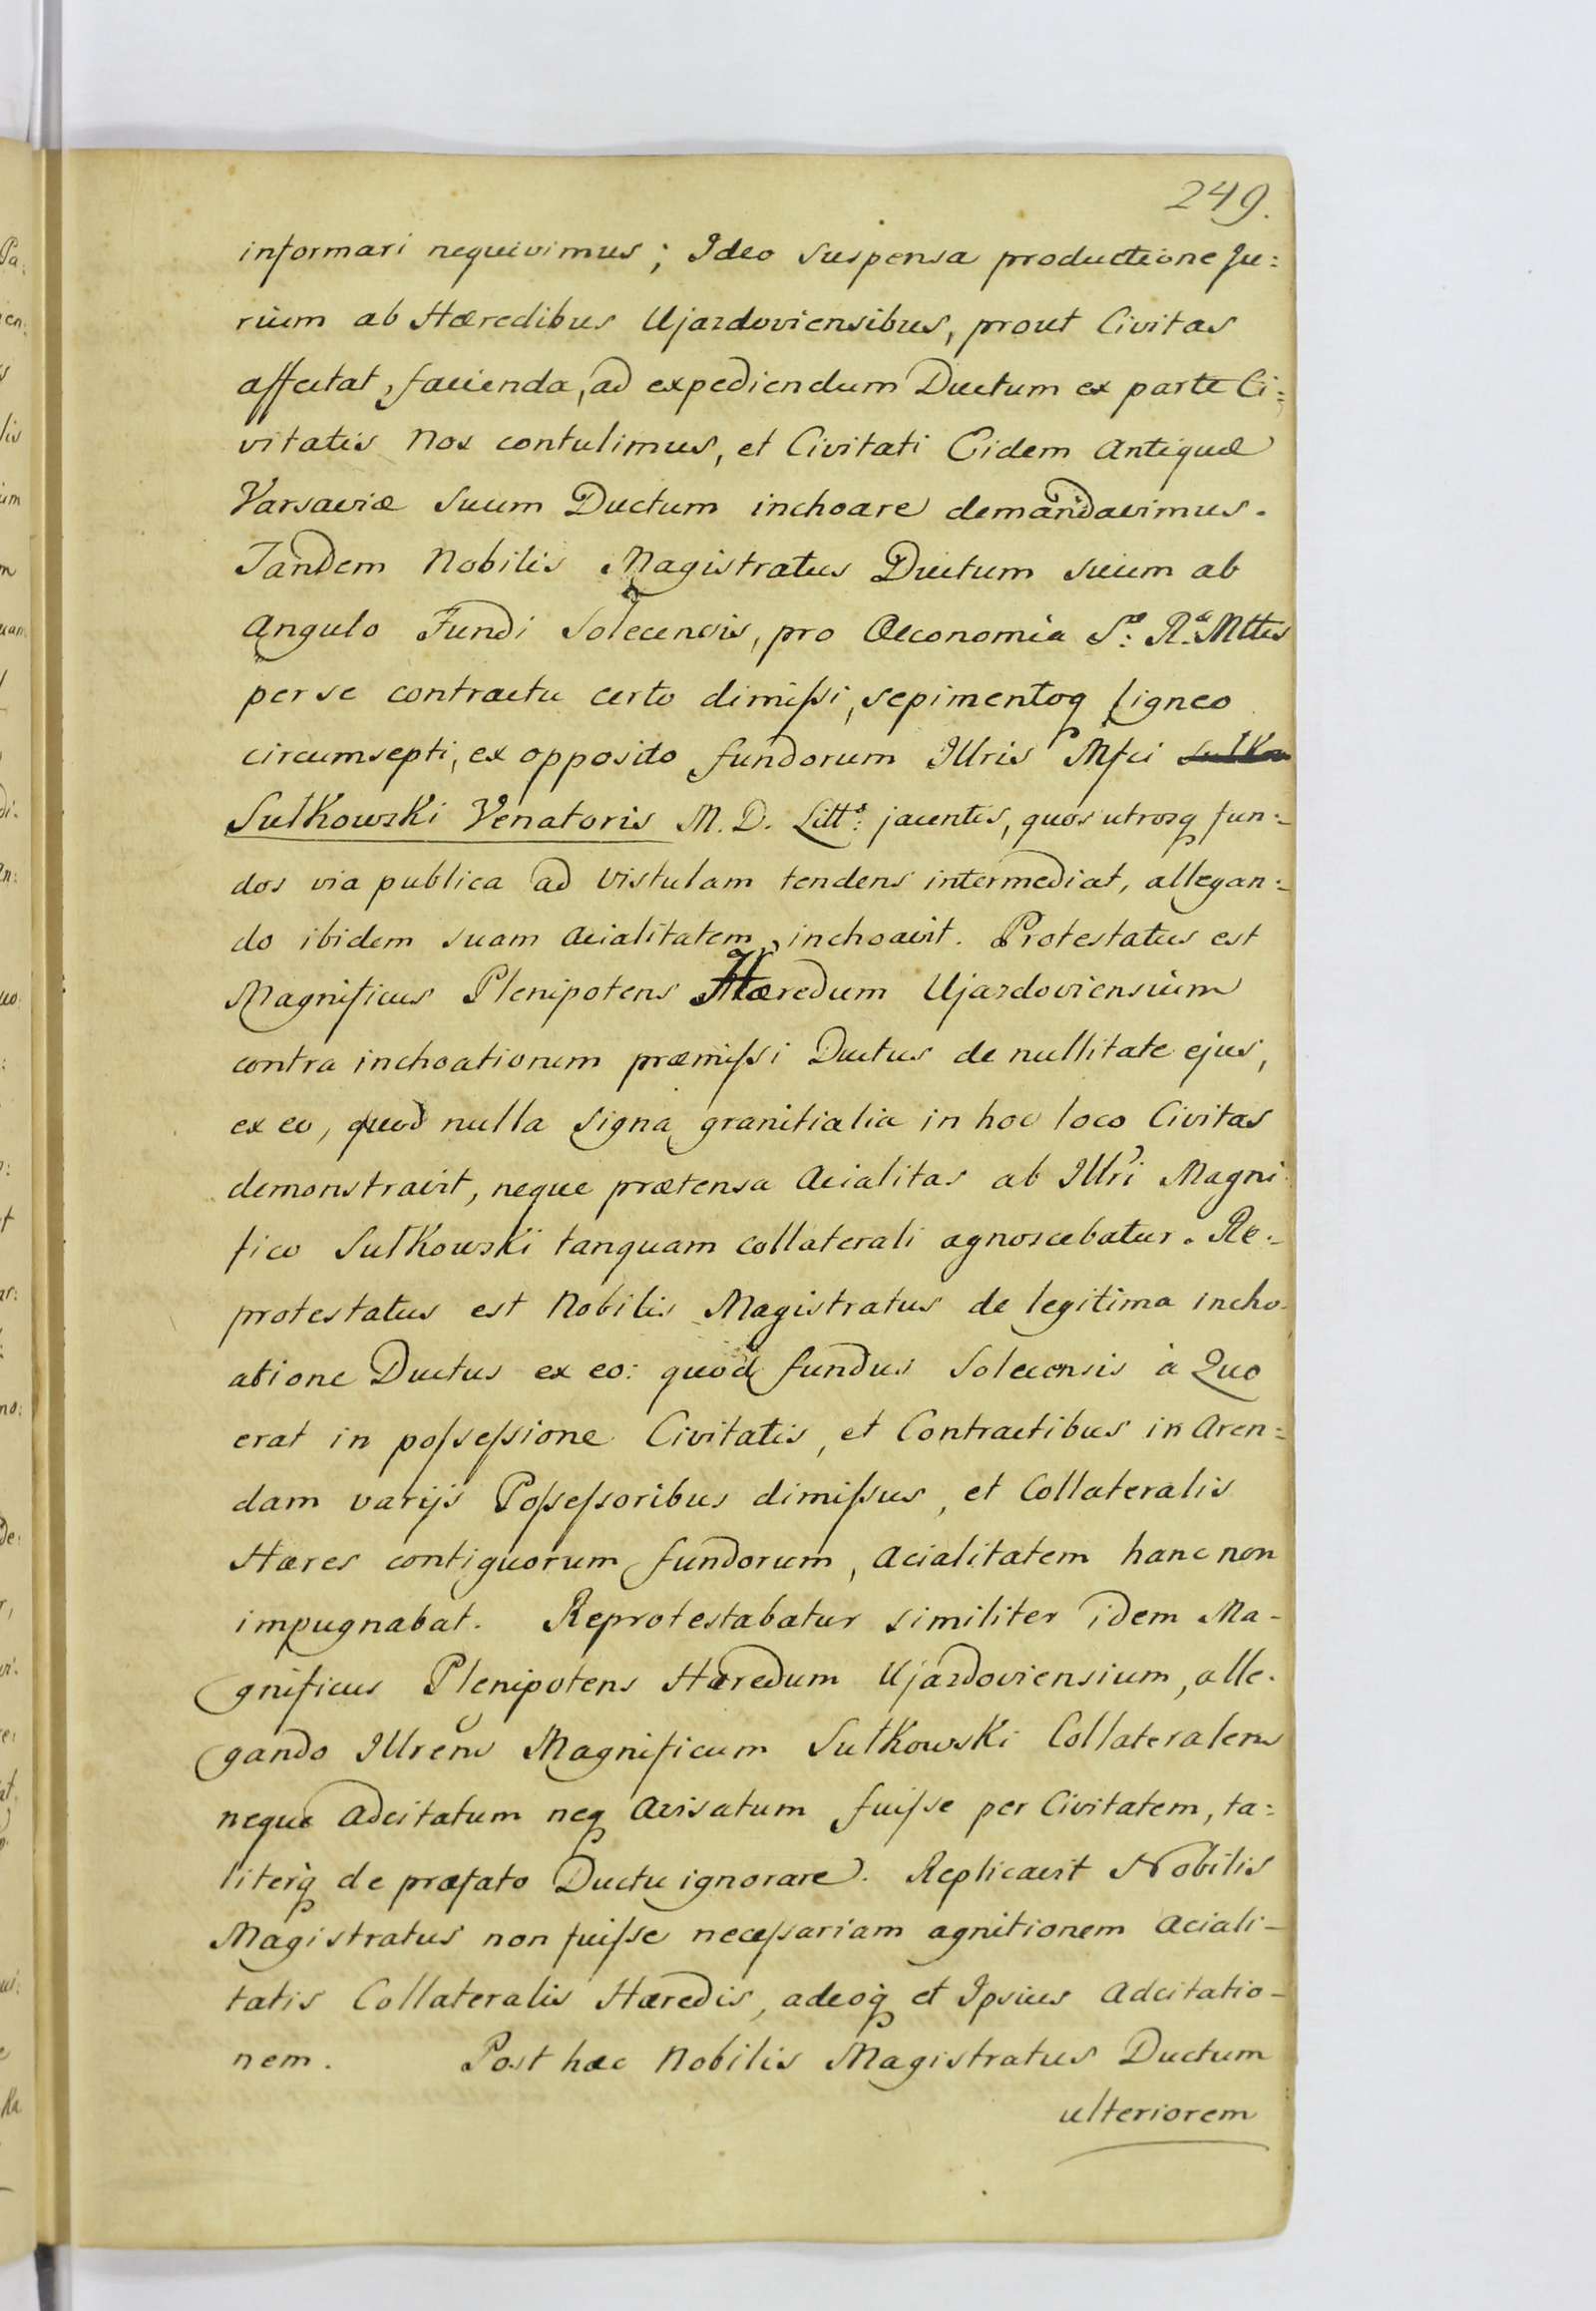 249.
informari nequivimus; Ideo suspensa productione Ju:
rium ab Hæredibus Ujazdoviensibus, prout Civitas
affectat, facienda, ad expediendum Ductum ex parte Ci:
vitatis Nos contulimus, et Civitati Eidem Antiquæ
Varsaviæ suum Ductum inchoare demandavimus.
Tandem Nobilis Magistratus Ductum suum ab
Angulo Fundi Solecensis, pro Oeconomia S: R: Mttis
per se contractu certo dimissi, sepimentoq ligneo
circumsepti, ex opposito fundorum Illris Mfci
Sułkowski Venatoris M. D. Litt: jacentis, quos utrosq fun:
dos via publica ad Vistulam tendens intermediat, allegan:
do ibidem suam Acialitatem, inchoavit. Protestatus est
Magnificus Plenipotens Hæredum Ujazdoviensium
contra inchoationem præmissi Ductus de nullitate ejus,
ex eo, quod nulla signa granitialia in hoc loco Civitas
demonstravit, neque prætensa Acialitas ab Illri Magni
fico Sułkowski tanquam collaterali agnoscebatur. Re:
protestatus est Nobilis Magistratus de legitima incho
atione Ductus ex eo: quod fundus Solecensis à Quo
erat in possessione Civitatis, et Contractibus in Aren:
dam varijs Possessoribus dimissus, et Collateralis
Hæres contiguorum fundorum, Acialitatem hanc non
impugnabat. Reprotestabatur similiter idem Ma-
gnificus Plenipotens Hæredum Ujazdoviensium, alle.
gando Illrem Magnificum Sułkowski Collateralem
neque Adcitatum neq Avisatum fuisse per Civitatem, ta:
literq de præfato Ductu ignorare. Replicavit Nobilis
Magistratus non fuisse necessariam agnitionem Aciali-
tatis Collateralis Hæredis, adeoq et Ipsius Adcitatio-
nem. Post hæc Nobilis Magistratus Ductum
ulteriorem